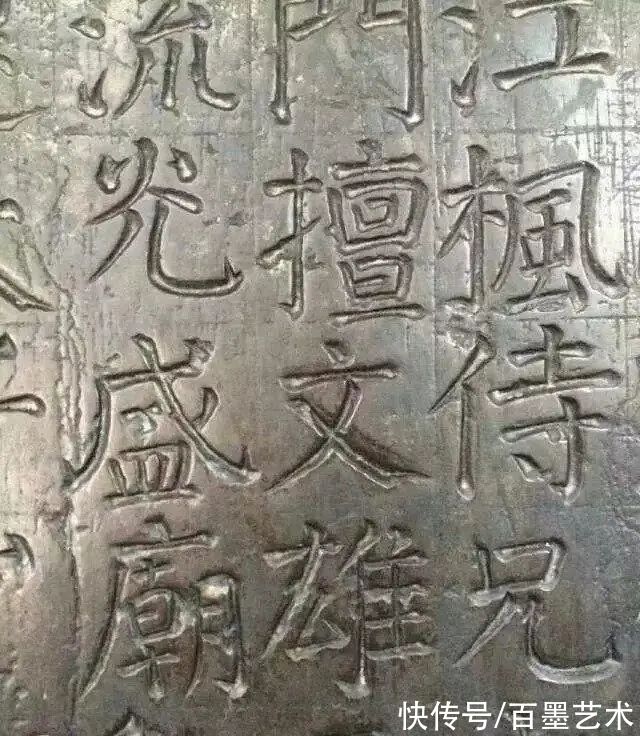 楓侍兄
門擅文雄
流光盛廟
快传号/百墨艺术